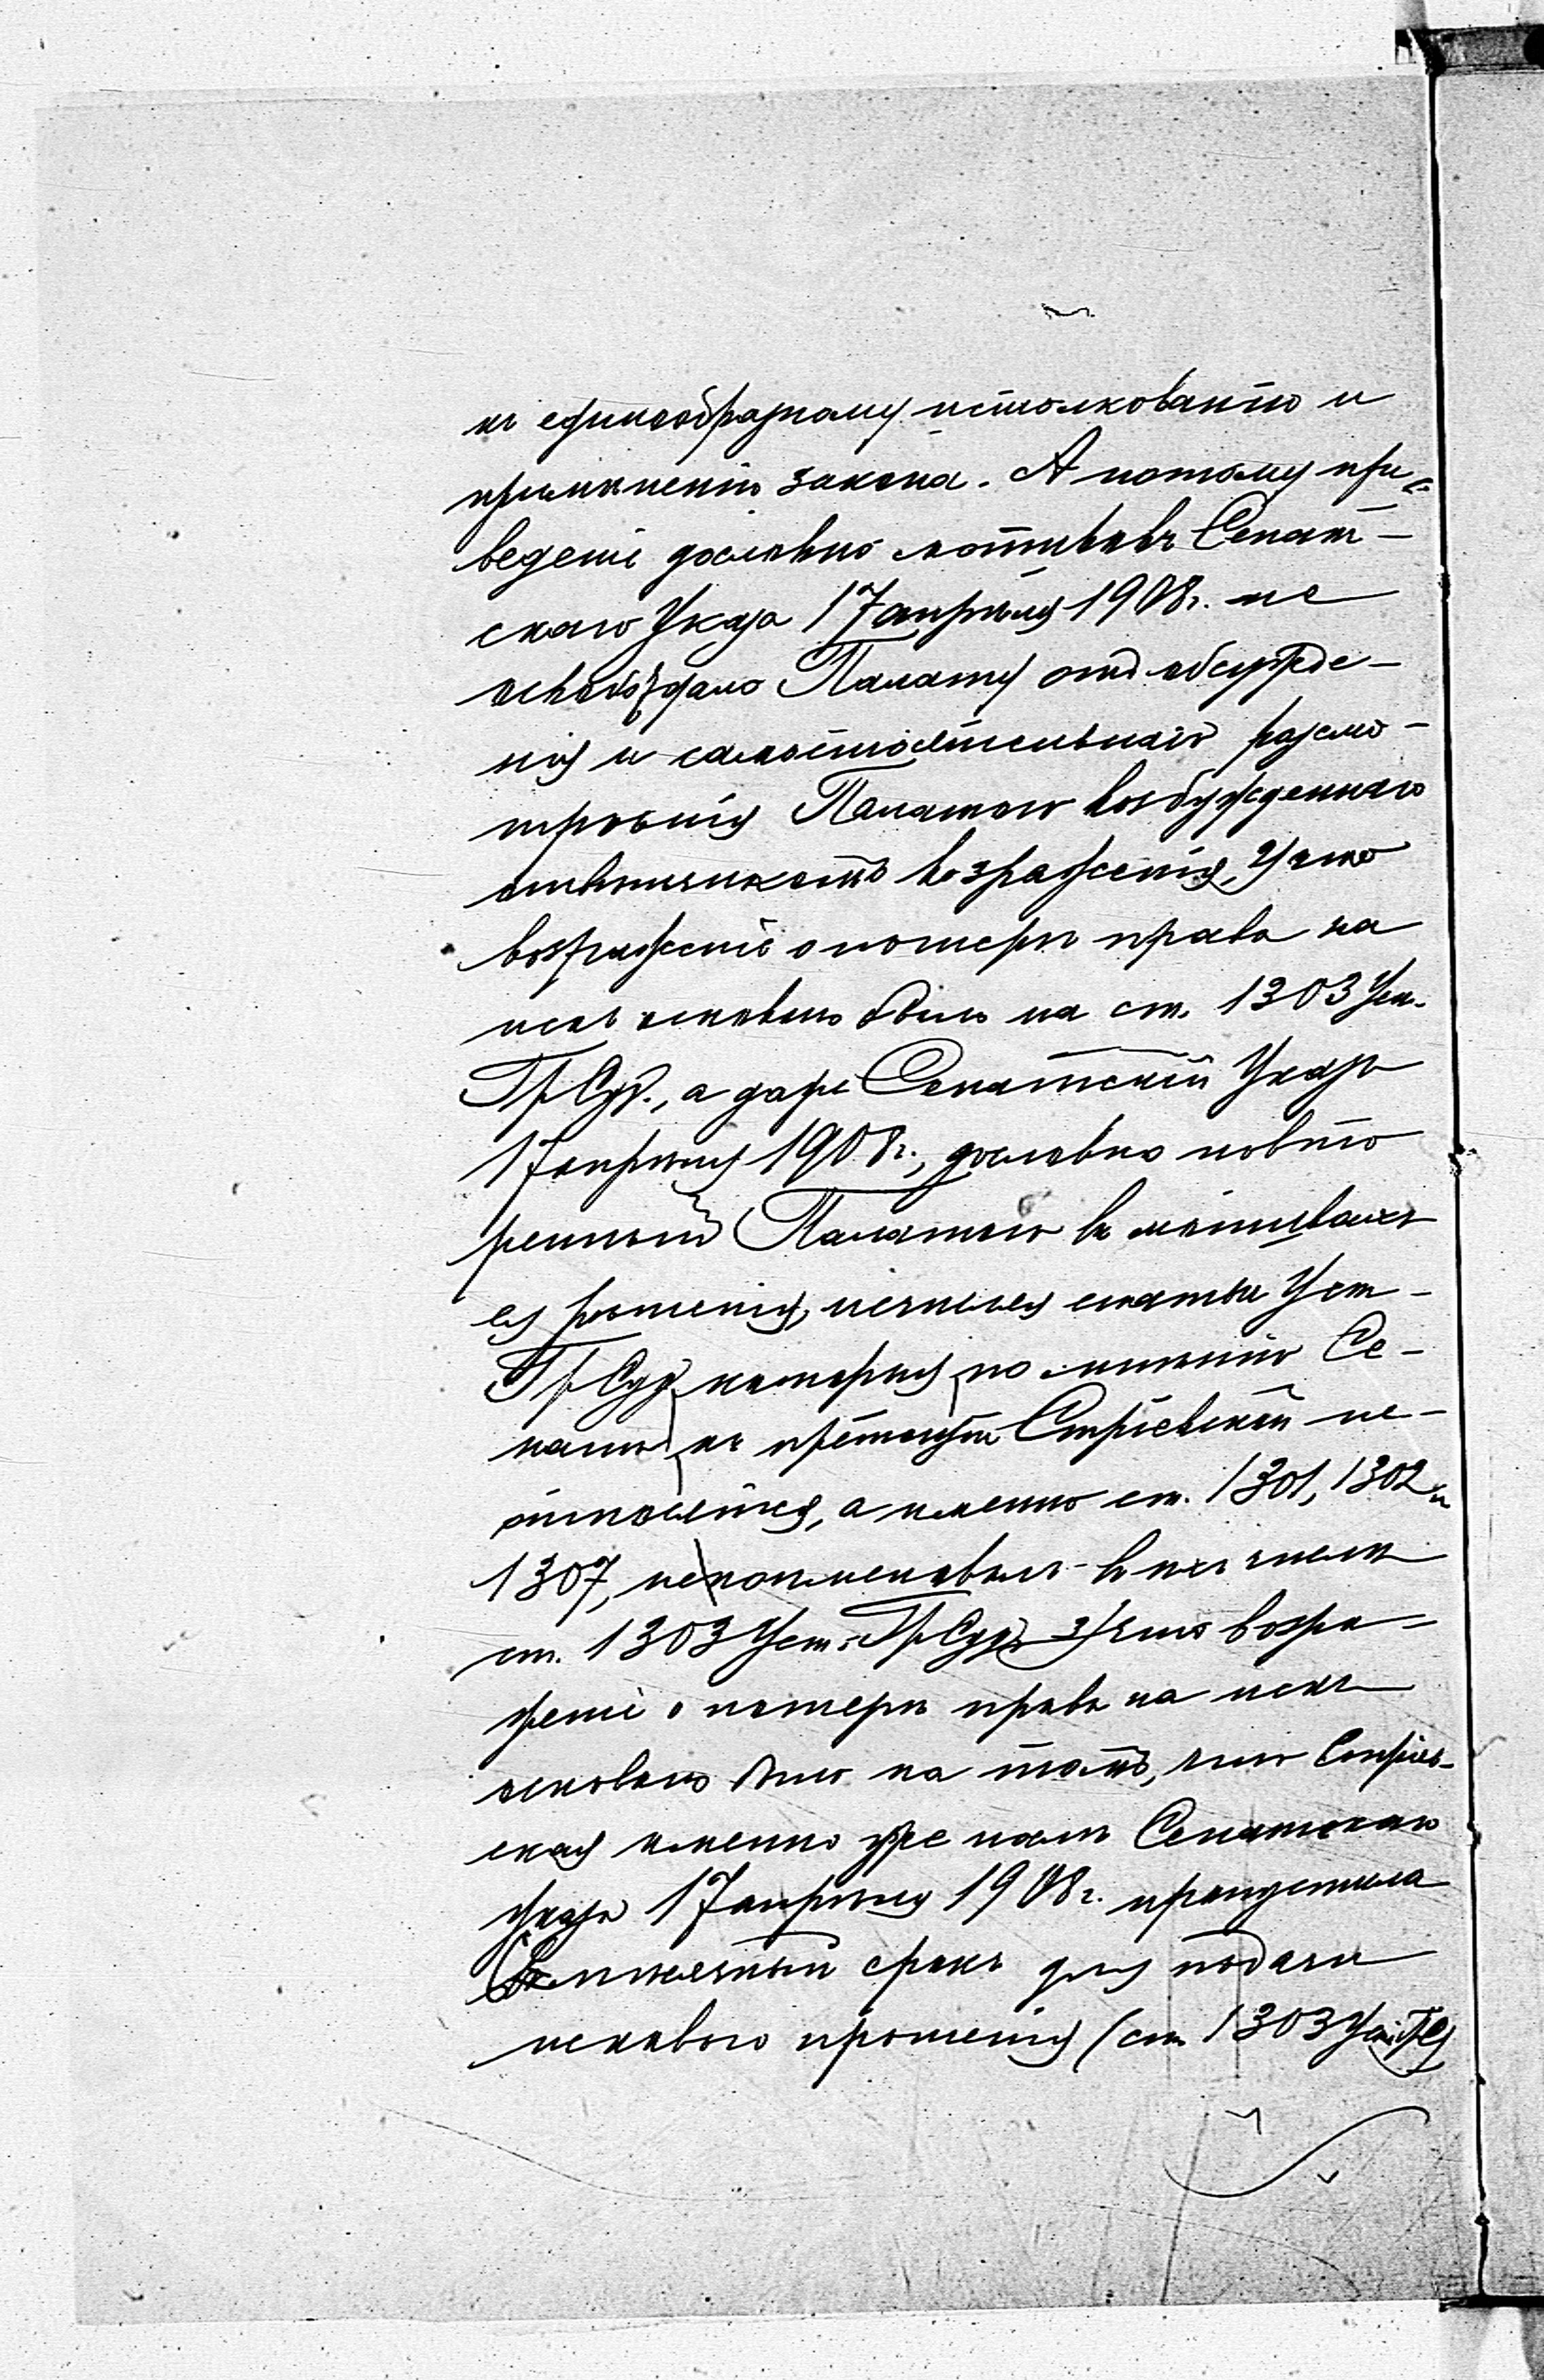 къ единообразному истолкованію и
примѣненію закона. А потому при-
веденіе дословно мотивовъ Сенат-
скаго Указа 17 апрѣля 1908 г. не
освобождало Палату отъ обсужде-
нія и самостоятельнаго разсмо-
трѣнія Палатою возбужденнаго
отвѣтчикомъ возраженія, 2) что
возраженіе о потерѣ права на
искъ основано было на ст. 1303 Уст.
Гр Суд., а даже Сенатскій Указъ
17 апрѣля 1908 г., дословно повто
ренный Палатою въ мотивахъ
ея рѣшенія, исчисляя статьи Уст-
Гр Суд, которыя, по мнѣнію Се-
ната, къ претензіи Стріевской не-
относятся, а именно ст. 1301, 1302 и
1307, не поименовалъ въ ихъ числѣ
ст. 1303 Уст. Гр Суд, 3) что возра-
женіе о потерѣ права на искъ
основано было на томъ, что Стріев-
ская именно уже послѣ Сенатскаго
Указа 17 апрѣля 1908 г. пропустила
мѣсячный срокъ для подачи
исковаго прошенія (ст 1303 Уст Гр С